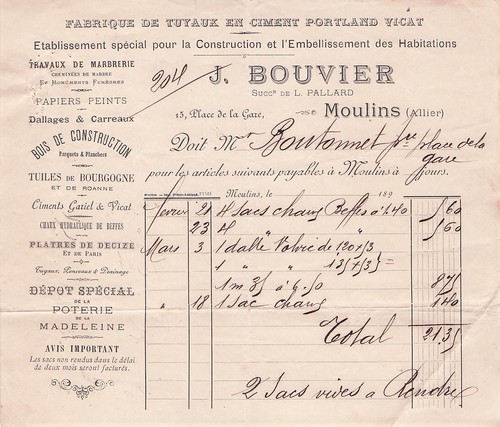 FABRIQUE DE TUYAUX EN CIMENT PORTLAND VICAT
Etablissement spécial pour la Construction et l'Embellissement des Habitations
TRAVAUX DE MARBRERIE
CHEMINÉES DE MARBRE
ET MONUMENTS FUNÈBRES
PAPIERS PEINTS
Dallages & Carreaux
BOIS DE CONSTRUCTION
Parquets & Planchers
TUILES DE BOURGOGNE
ET DE ROANNE
Ciments Gariel & Vicat
CHAUX HYDRAULIQUE DE BEFFES
PLATRES DE DECIZE
ET DE PARIS
Tuyaux, Ponceaux & Drainage
DÉPÔT SPÉCIAL
DE LA
POTERIE
DE LA
MADELEINE
AVIS IMPORTANT
Les sacs non rendus dans le délai
de deux mois seront facturés.
204
J. BOUVIER
SUCCR DE L. PALLARD
15, Place de la Gare,
Moulins (Allier)
Doit Mr Boutonnet place de la
gare
pour les articles suivants payables à Moulins à jours.
Moulins, le 189
fevrier 21 4 Sacs chaux Beffes à 1.40 5 60
23 4 " " 5 60
Mars 3 1 dalle Volvic de 120 x
1 " "
1 m à 6.50 8 75
" 18 1 Sac chaux 1 40
Total 21.35
2 Sacs vides a Rendre